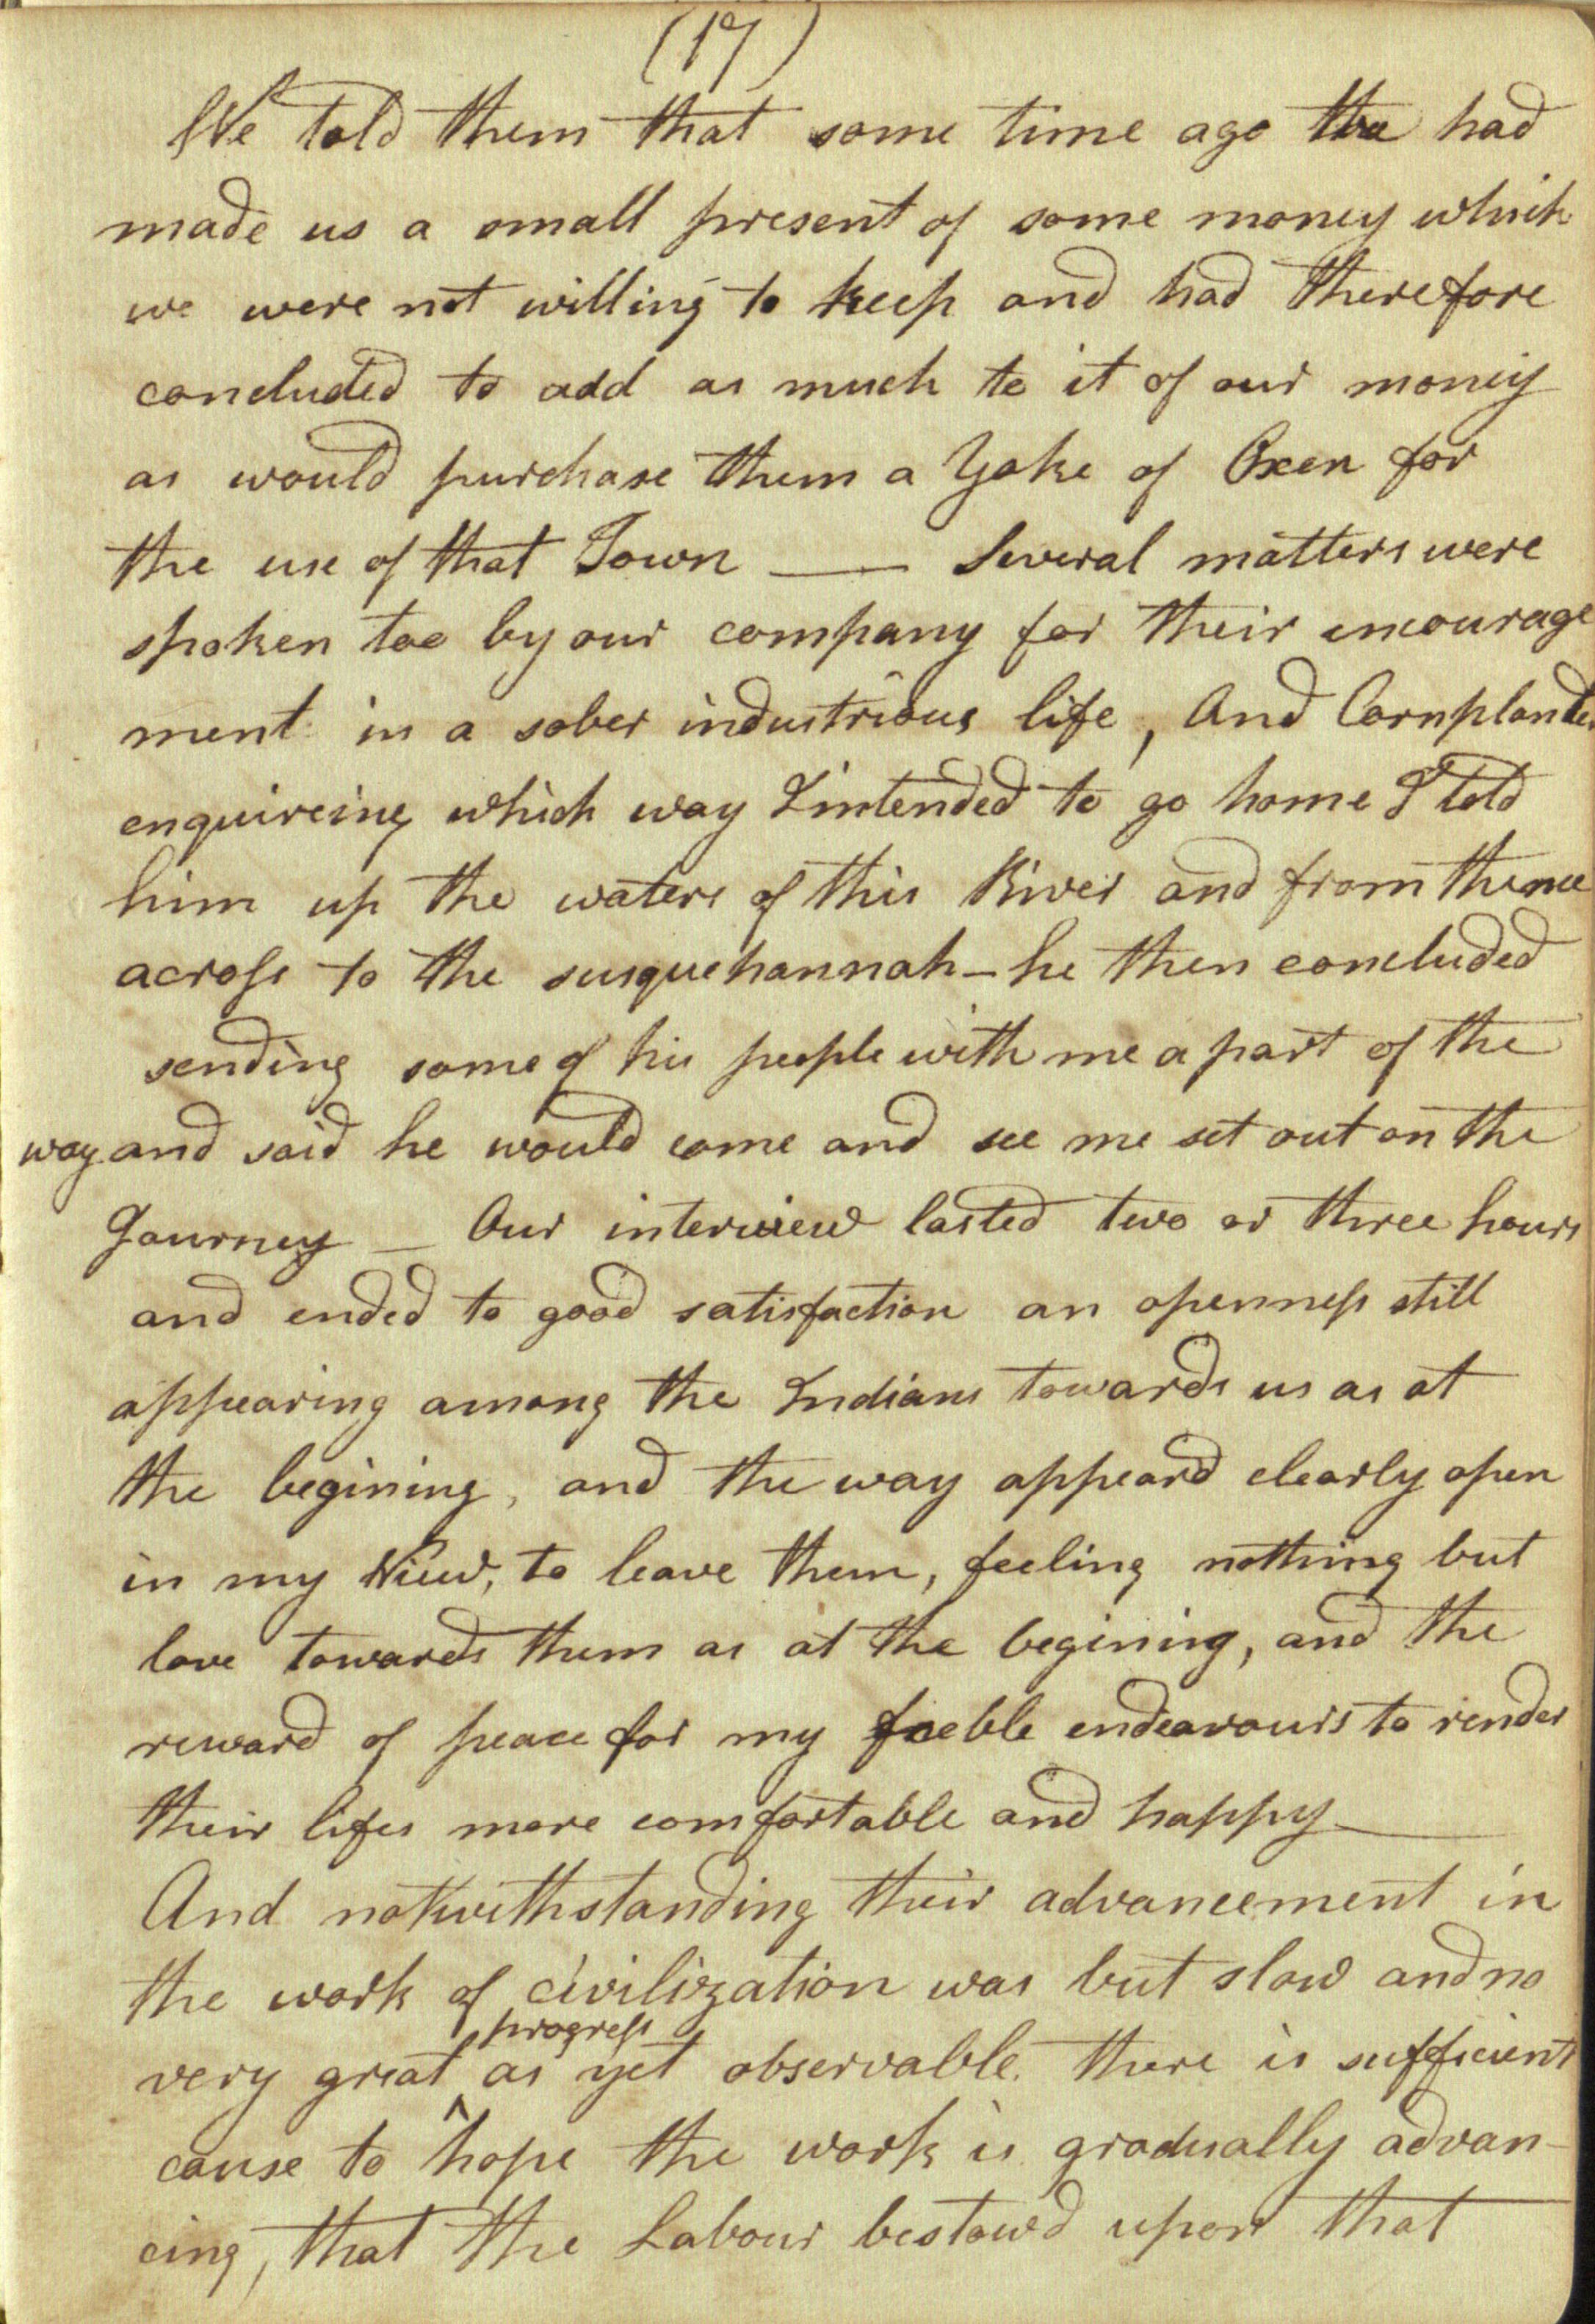 (17)
We told them that some time ago the had
made us a small present of some money which
we were not willing to keep and had therefore
concluded to add as much to it of our money
as would purchase them a Yoke of Oxen for
the use of that Town — Several matters were
spoken too by our company for their encourage
ment in a sober industrious life, And Cornplanter
enquireing which way I intended to go home I told
him up the waters of this River and from thence
across to the susquehannah – he then concluded
sending some of his people with me a part of the
way and said he would come and see me set out on the
Journey — Our interview lasted two or three hours
and ended to good satisfaction an openness still
appearing among the Indians towards us as at
the begining, and the way appeard clearly open
in my View, to leave them, feeling nothing but
love towards them as at the begining, and the
reward of peace for my feeble endeavours to render
their lifes more comfortable and happy —
And notwithstanding their advancement in
the work of civilization was but slow and no
progress
very great ^ as yet observable. there is sufficient
cause to hope the work is gradually advan-
cing, that the Labour bestow'd upon that